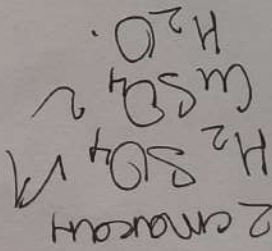 2 стакан
H₂SO₄ и
CuSO₄
H₂O.